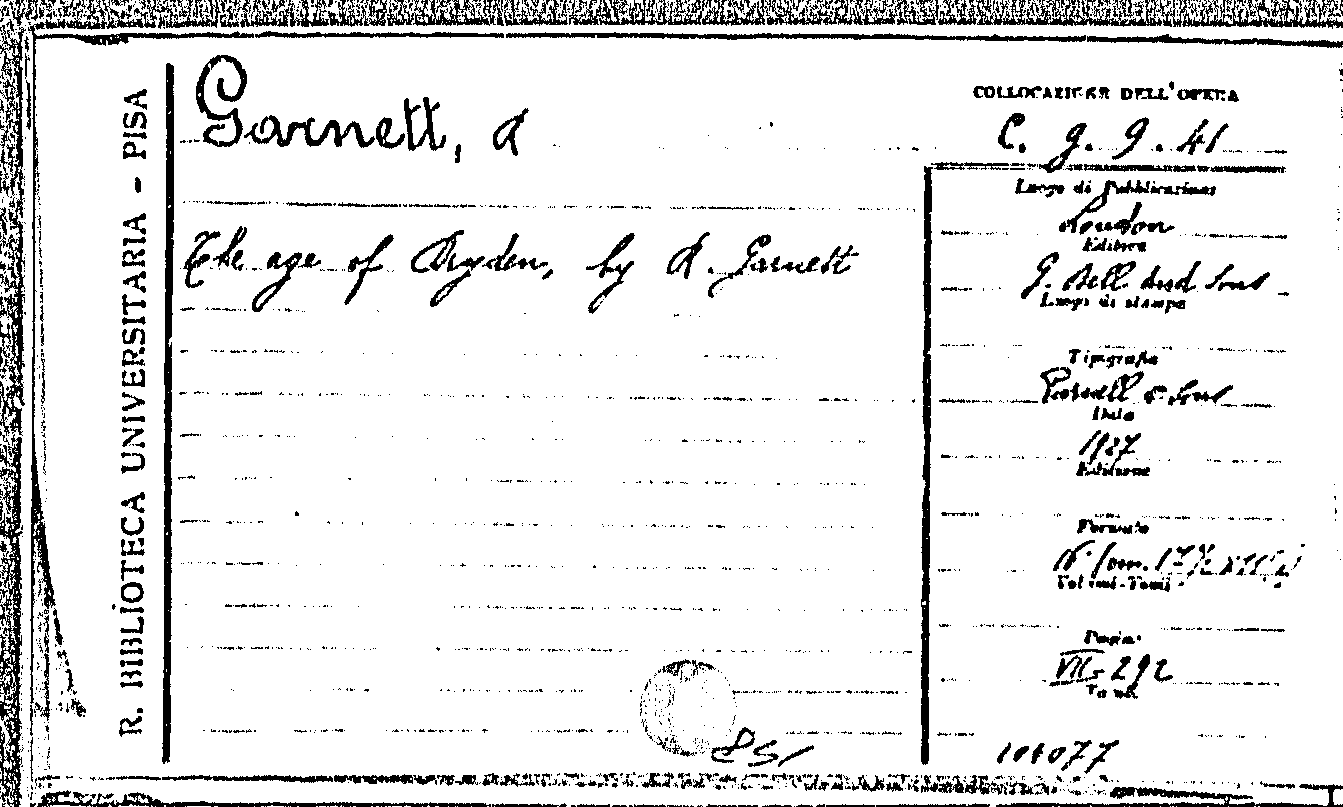 R. BIBLIOTECA UNIVERSITARIA - PISA
Garnett, R
The age of Dryden, by R. Garnett
COLLOCAZIONE DELL'OPERA
C. g. 9. 41
Luogo di Pubblicazione
London
Editore
G. Bell and Sons
Luogo di stampa
Tipografia
& Sons
Data
1927
Edizione
Formato
16° (cm.
Volumi-Tomi
Pagine
VII-292
Tavole